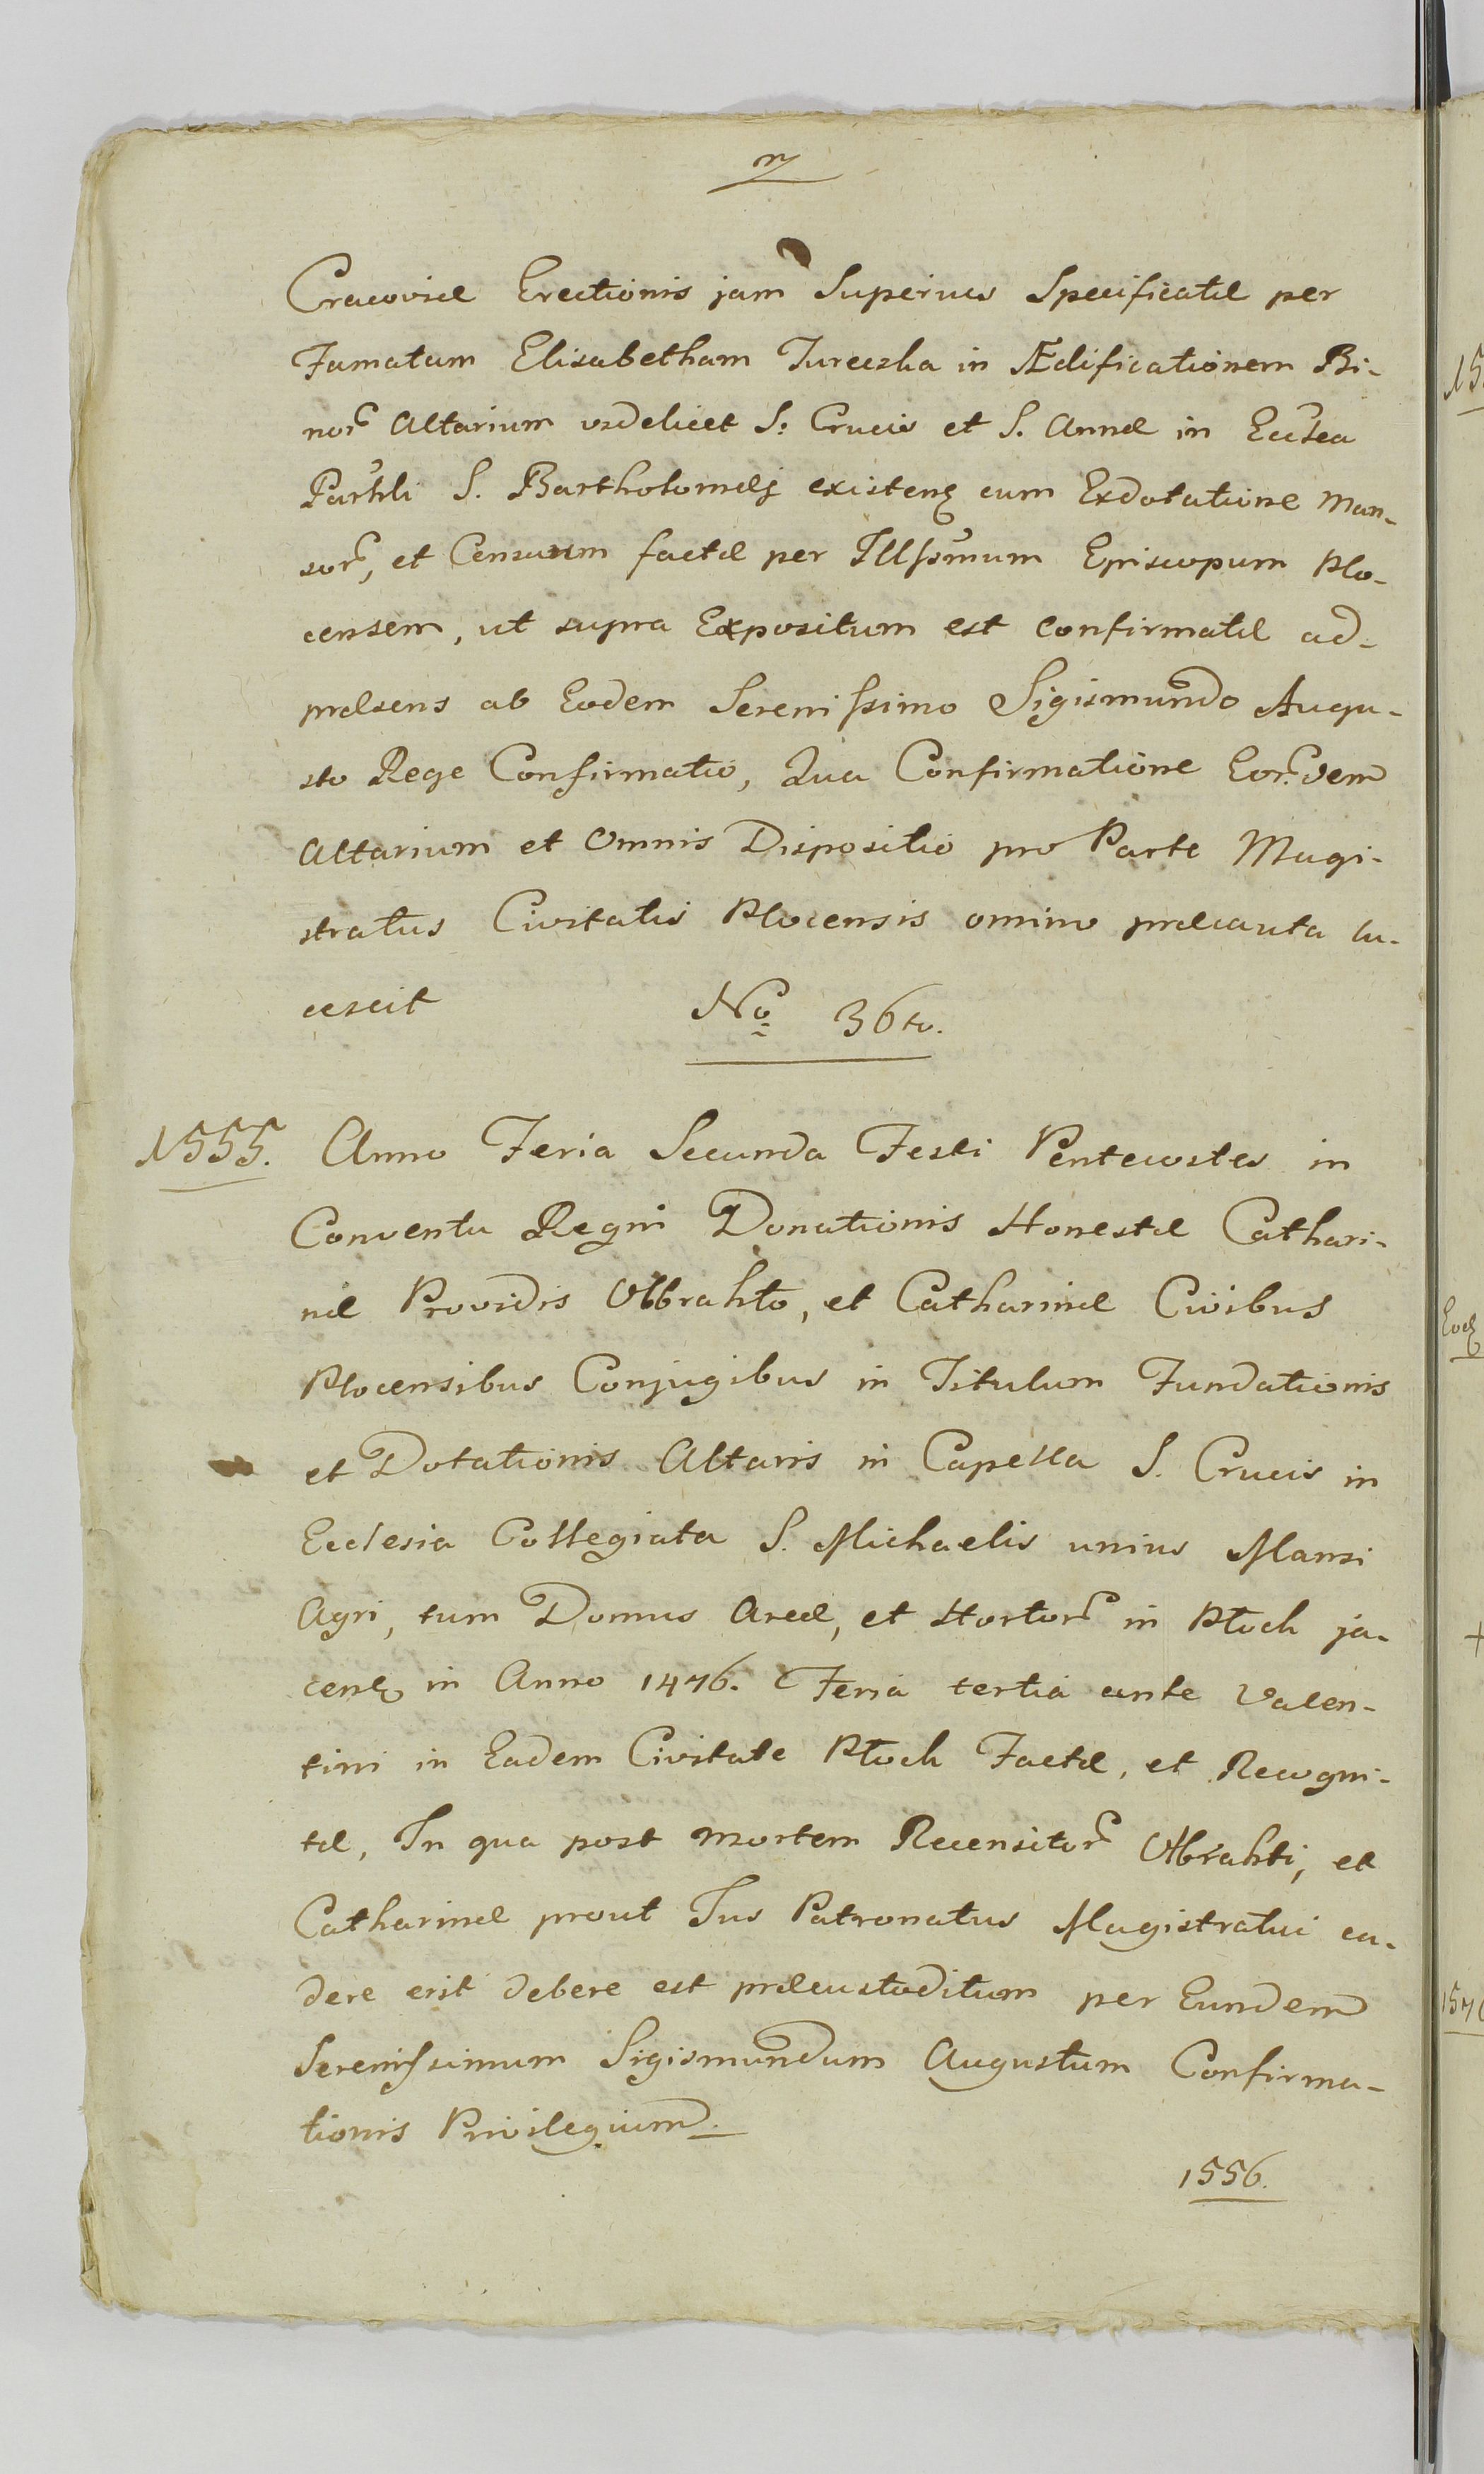 Cracoviæ Erectionis jam Superius Specificatæ per
Famatam Elisabetham Turecska in Ædificationem Bi-
nor. Altarium videlicet S. Crucis et S. Annæ in Ecclea
Parhli S. Bartholomæj existen. cum Exdotatione Man-
sor., et Censuum factæ per Illssmum Episcopum Plo-
censem, ut supra Expositum est Confirmatæ ad-
præsens ab Eodem Serenissimo Sigismundo Augu-
sto Rege Confirmatio, Qua Confirmatione Eor.dem
Altarium et Omnis Dispositio pro Parte Magi-
stratus Civitatis Plocensis omino præcauta lu-
cescit No 36to.
1555. Anno Feria Secunda Festi Pentecostes in
Conventu Regni Donationis Honestæ Cathari-
næ Providis Olbrahto, et Catharinæ Civibus
Plocensibus Conjugibus in Titulum Fundationis
et Dotationis Altaris in Capella S. Crucis in
Ecclesia Collegiata S. Michaelis unius Mansi
Agri, tum Domus Areæ, et Hortor. in Płock ja-
cen. in Anno 1476. Feria tertia ante Valen-
tini in Eadem Civitate Płock Factæ, et Recogni-
tæ, In qua post mortem Recensitor. Olbrahti, et
Catharinæ prout Jus Patronatus Magistratui ca-
dere erit debere est præcustoditum per Eundem
Serenissimum Sigismundum Augustum Confirma-
tionis Privilegium.
1556.